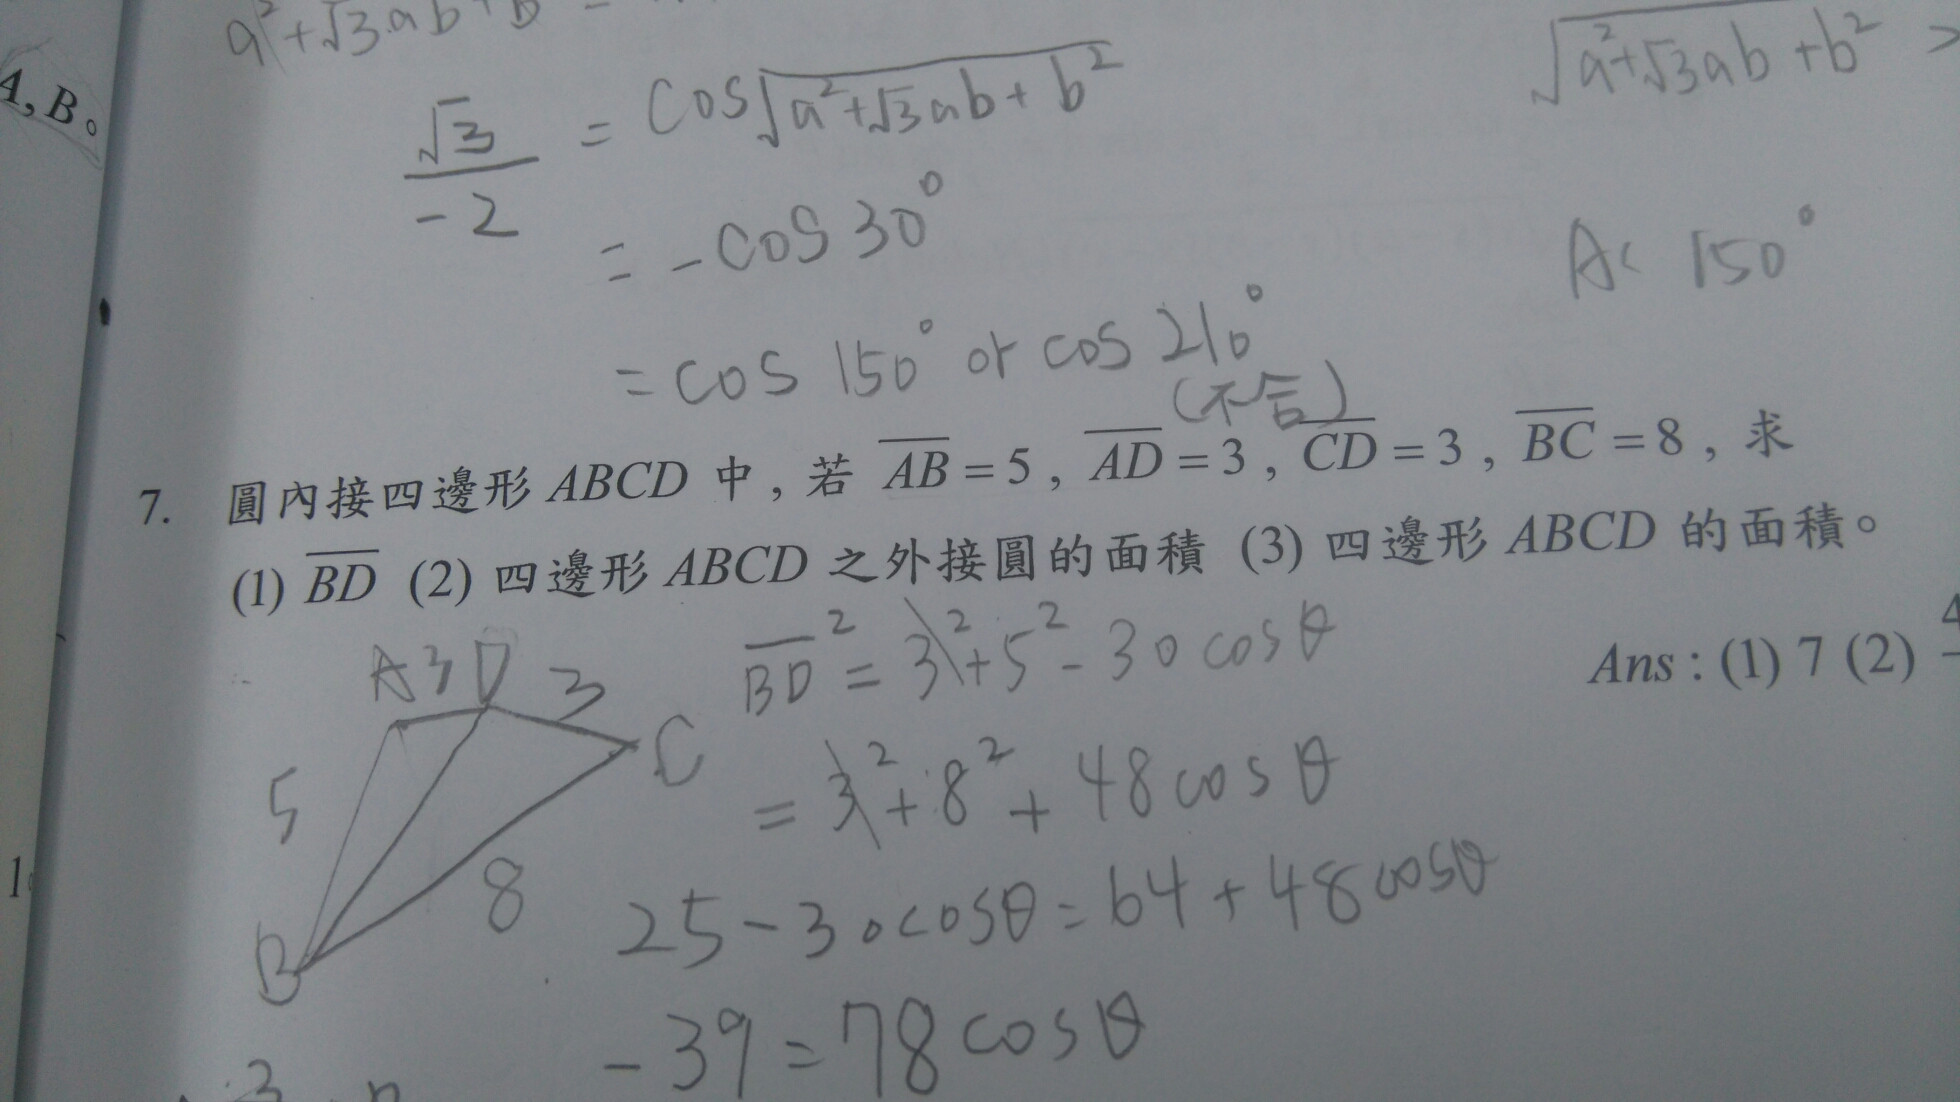 a²+√3ab+b
√(a²+√3ab+b²) >
A,B。
√3/-2 = cos√(a²+√3ab+b²)
= -cos30°
A< 150°
= cos 150° or cos 210°
(不合)
7. 圓內接四邊形 ABCD 中，若 \overline{AB}=5，\overline{AD}=3，\overline{CD}=3，\overline{BC}=8，求
(1) \overline{BD} (2) 四邊形 ABCD 之外接圓的面積 (3) 四邊形 ABCD 的面積。
Ans：(1) 7 (2)
A 3 D 3
C
5
8
B
\overline{BD}² = 3²+5²-30cosθ
= 3²+8²+48cosθ
25-30cosθ=64+48cosθ
-39=78cosθ
3